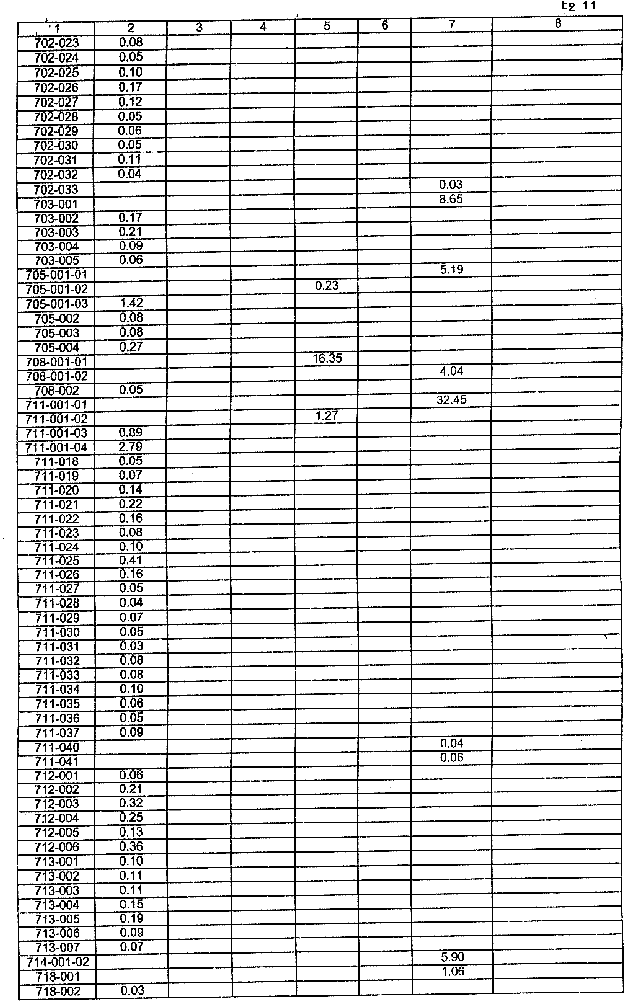 Eg 11
1 2 3 4 5 6 7 8
702-023 0.08
702-024 0.05
702-025 0.10
702-026 0.17
702-027 0.12
702-028 0.05
702-029 0.06
702-030 0.05
702-031 0.11
702-032 0.04
702-033 0.03
703-001 8.65
703-002 0.17
703-003 0.21
703-004 0.09
703-005 0.06
705-001-01 5.19
705-001-02 0.23
705-001-03 1.42
705-002 0.08
705-003 0.08
705-004 0.27
708-001-01 16.35
708-001-02 4.04
708-002 0.05
711-001-01 32.45
711-001-02 1.27
711-001-03 0.89
711-001-04 2.79
711-018 0.05
711-019 0.07
711-020 0.14
711-021 0.22
711-022 0.16
711-023 0.08
711-024 0.10
711-025 0.41
711-026 0.16
711-027 0.05
711-028 0.04
711-029 0.07
711-030 0.05
711-031 0.03
711-032 0.08
711-033 0.08
711-034 0.10
711-035 0.06
711-036 0.05
711-037 0.09
711-040 0.04
711-041 0.06
712-001 0.06
712-002 0.21
712-003 0.32
712-004 0.25
712-005 0.13
712-006 0.36
713-001 0.10
713-002 0.11
713-003 0.11
713-004 0.15
713-005 0.19
713-006 0.09
713-007 0.07
714-001-02 5.90
718-001 1.06
718-002 0.03